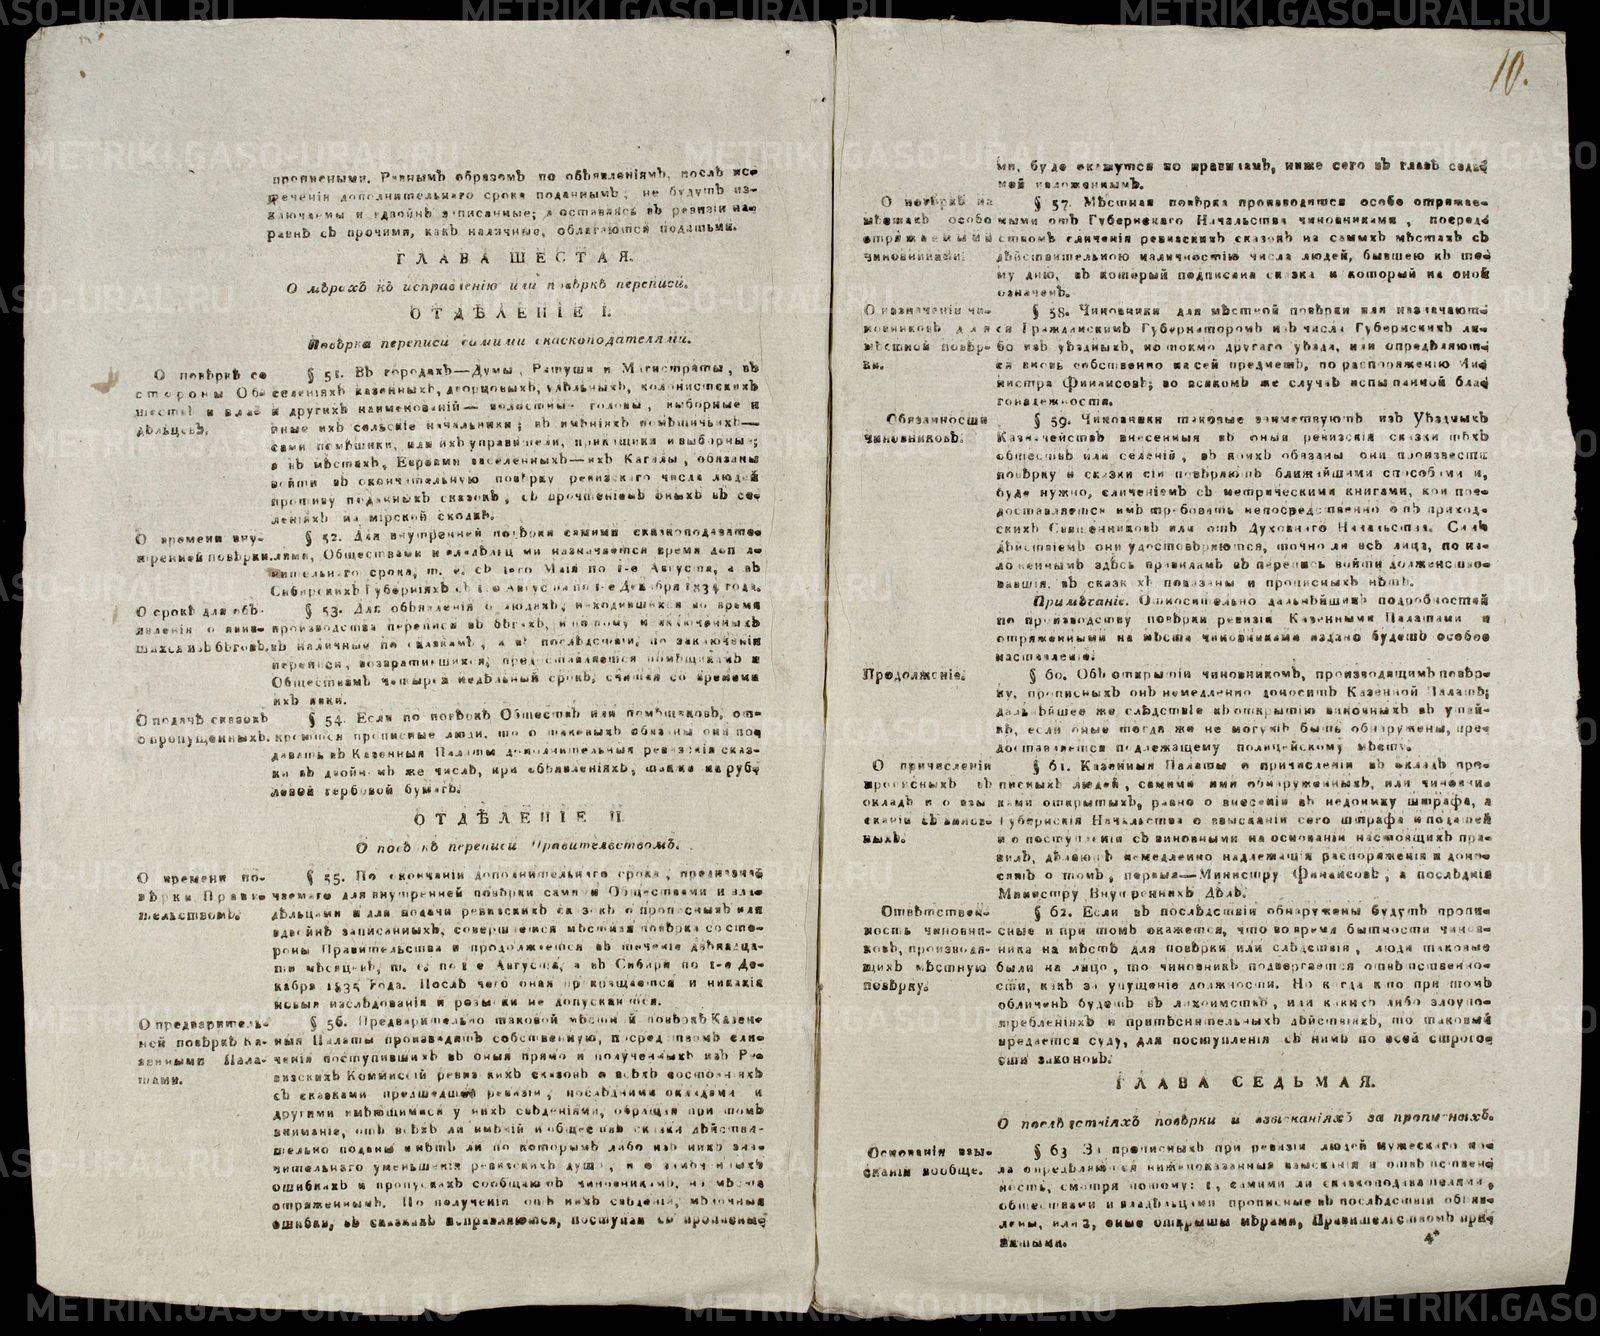 10.
прописными. Равнымъ образомъ по объявленіямъ, послѣ ис-
теченія дополнительнаго срока поданнымъ, не будутъ из-
ключаемы и вдвойнѣ записанные; а оставаясь въ ревизіи на-
равнѣ съ прочими, какъ наличные, облагаются податьми.
ГЛАВА ШЕСТАЯ.
О мѣрахъ къ исправленію или повѣркѣ переписи.
ОТДѢЛЕНІЕ I.
Повѣрка переписи самими сказкоподателями.
О повѣркѣ со
стороны Об-
ществъ и вла-
дѣльцевъ.
§ 51. Въ городахъ—Думы, Ратуши и Магистраты, въ
селеніяхъ казенныхъ, дворцовыхъ, удѣльныхъ, колонистскихъ
и другихъ наименованій— волостные головы, выборные и
иные ихъ сельскіе начальники; въ имѣніяхъ помѣщичьихъ—
сами помѣщики, или ихъ управители, прикащики и выборные;
а въ мѣстахъ, Евреями заселенныхъ—ихъ Кагалы, обязаны
войти въ окончательную повѣрку ревизскаго числа людей
противу поданныхъ сказокъ, съ прочтеніемъ оныхъ въ се-
леніяхъ на мірской сходкѣ.
О времени вну-
тренней повѣрки.
§ 52. Для внутренней повѣрки самими сказкоподавате-
лями, Обществами и владѣльцами назначается время допол-
нительнаго срока, т. е. съ 1-го Маія по 1-е Августа, а въ
Сибирскихъ Губерніяхъ съ 1-го Августа по 1-е Декабря 1834 года.
О срокѣ для объ-
явленія о явив-
шихся изъ бѣговъ.
§ 53. Для объявленія о людяхъ, находившихся во время
производства переписи въ бѣгахъ, и потому не включенныхъ
въ наличные по сказкамъ, а въ послѣдствіи, по заключеніи
переписи, возвратившихся, предоставляется помѣщикамъ и
Обществамъ четырехнедѣльный срокъ, считая со времени
ихъ явки.
О подачѣ сказокъ
о пропущенныхъ.
§ 54. Если по повѣркѣ Обществъ или помѣщиковъ, от-
кроются прописные люди, то о таковыхъ обязаны они по-
давать въ Казенныя Палаты дополнительныя ревизскія сказ-
ки въ двойномъ же числѣ, при объявленіяхъ, также на руб-
левой гербовой бумагѣ.
ОТДѢЛЕНІЕ II.
О повѣркѣ переписи Правительствомъ.
О времени по-
вѣрки Прави-
тельствомъ.
§ 55. По окончаніи дополнительнаго срока, предназна-
чаемаго для внутренней повѣрки самими Обществами и вла-
дѣльцами и для подачи ревизскихъ сказокъ о прописныхъ или
вдвойнѣ записанныхъ, совершается мѣстная повѣрка со сто-
роны Правительства и продолжается въ теченіе двѣнадца-
ти мѣсяцевъ, т. е. по 1-е Августа, а въ Сибири по 1-е Де-
кабря 1835 года. Послѣ чего оная прекращается и никакія
новыя изслѣдованія и розыски не допускаются.
О предваритель-
ной повѣркѣ Ка-
зенными Пала-
тами.
§ 56. Предварительно таковой мѣстной повѣркѣ Казен-
ныя Палаты производятъ собственную, посредствомъ сли-
ченія поступившихъ въ оныя прямо и полученныхъ изъ Ре-
визскихъ Коммиссій ревизскихъ сказокъ о всѣхъ состояніяхъ
съ сказками предшедшей ревизіи, послѣдними окладами и
другими имѣющимися у нихъ свѣденіями, обращая при томъ
вниманіе, отъ всѣхъ ли имѣній и обществъ сказки дѣйстви-
тельно поданы и нѣтъ ли по которымъ либо изъ нихъ зна-
чительнаго уменьшенія ревизскихъ душъ, и о замѣченныхъ
ошибкахъ и пропускахъ сообщаютъ чиновникамъ, на мѣста
отряженнымъ. По полученіи отъ нихъ свѣденій, мѣлочныя
ошибки, въ сказкахъ исправляются, поступая съ прописны-
ми, буде окажутся по правиламъ, ниже сего въ главѣ седь-
мой изложеннымъ.
О повѣркѣ на
мѣстахъ особо
отряжаемыми
чиновниками.
§ 57. Мѣстная повѣрка производится особо отряжае-
мыми отъ Губернскаго Начальства чиновниками, посред-
ствомъ сличенія ревизскихъ сказокъ на самыхъ мѣстахъ съ
дѣйствительною наличностію числа людей, бывшею къ то-
му дню, въ который подписана сказка и который на оной
означенъ.
О назначеніи чи-
новниковъ для
мѣстной повѣр-
ки.
§ 58. Чиновники для мѣстной повѣрки или назначают-
ся Гражданскимъ Губернаторомъ изъ числа Губернскихъ ли-
бо изъ уѣздныхъ, но токмо другаго уѣзда, или опредѣляют-
ся вновь собственно на сей предметъ, по распоряженію Ми-
нистра Финансовъ; во всякомъ же случаѣ испытанной бла-
гонадежности.
Обязанности
чиновниковъ.
§ 59. Чиновники таковые заимствуютъ изъ Уѣздныхъ
Казначействъ внесенныя въ оныя ревизскія сказки тѣхъ
обществъ или селеній, въ коихъ обязаны они произвести
повѣрку и сказки сіи повѣряютъ ближайшими способами и,
буде нужно, сличеніемъ съ метрическими книгами, кои пре-
доставляется имъ требовать непосредственно отъ приход-
скихъ Священниковъ или отъ Духовнаго Начальства. Симъ
дѣйствіемъ они удостовѣряются, точно ли всѣ лица, по из-
ложеннымъ здѣсь правиламъ въ перепись войти долженство-
вавшія, въ сказкахъ показаны и прописныхъ нѣтъ.
Примѣчаніе. Относительно дальнѣйшихъ подробностей
по производству повѣрки ревизіи Казенными Палатами и
отряженными на мѣста чиновниками издано будетъ особое
наставленіе.
Продолженіе.
§ 60. Объ открытіи чиновникомъ, производящимъ повѣр-
ку, прописныхъ онъ немедленно доноситъ Казенной Палатѣ;
дальнѣйшее же слѣдствіе къ открытію виновныхъ въ утай-
кѣ, если оные тогда же не могутъ быть обнаружены, пре-
доставляется подлежащему полицейскому мѣсту.
О причисленіи
прописныхъ въ
окладъ и о взы-
сканіи съ винов-
ныхъ.
§ 61. Казенныя Палаты о причисленіи въ окладъ про-
писныхъ людей, самими ими обнаруженныхъ, или чиновни-
ками открытыхъ, равно о внесеніи въ недоимку штрафа, а
Губернскія Начальства о взысканіи сего штрафа и податей
и о поступленіи съ виновными на основаніи настоящихъ пра-
вилъ, дѣлаютъ немедленно надлежащія распоряженія и доно-
сятъ о томъ, первыя—Министру Финансовъ, а послѣднія
Министру Внутреннихъ Дѣлъ.
Отвѣтствен-
ность чиновни-
ковъ, производя-
щихъ мѣстную
повѣрку.
§ 62. Если въ послѣдствіи обнаружены будутъ пропи-
сные и при томъ окажется, что во время бытности чинов-
ника на мѣстѣ для повѣрки или слѣдствія, люди таковые
были на лицо, то чиновникъ подвергается отвѣтственно-
сти, какъ за упущеніе должности. Но когда кто при томъ
обличенъ будетъ въ лихоимствѣ, или какихъ либо злоупо-
требленіяхъ и притѣснительныхъ дѣйствіяхъ, то таковый
предается суду, для поступленія съ нимъ по всей строго-
сти законовъ.
ГЛАВА СЕДЬМАЯ.
О послѣдствіяхъ повѣрки и взысканіяхъ за прописныхъ.
Основанія взы-
сканія вообще.
§ 63 За прописныхъ при ревизіи людей мужескаго по-
ла опредѣляются нижепоказанныя взысканія и отвѣтствен-
ность, смотря потому: 1, самими ли сказкоподавателями,
обществами и владѣльцами прописные въ послѣдствіи объяв-
лены, или 2, оные открыты мѣрами, Правительствомъ при-
нятыми.
4*